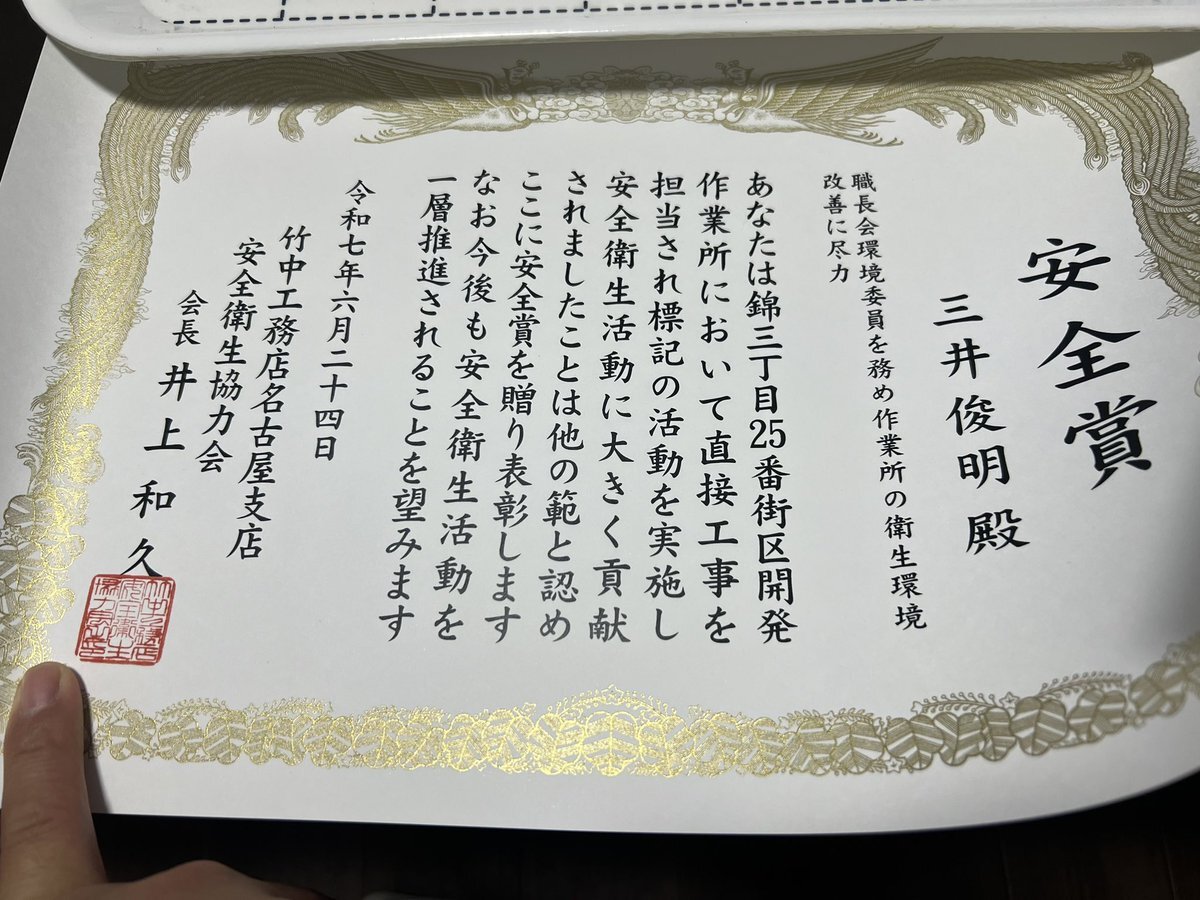 安全賞
三井俊明殿
職長会環境委員を務め作業所の衛生環境
改善に尽力
あなたは錦三丁目25番街区開発
作業所において直接工事を
担当され標記の活動を実施し
安全衛生活動に大きく貢献
されましたことは他の範と認め
ここに安全賞を贈り表彰します
なお今後も安全衛生活動を
一層推進されることを望みます
令和七年六月二十四日
竹中工務店名古屋支店
安全衛生協力会
会長 井上和久